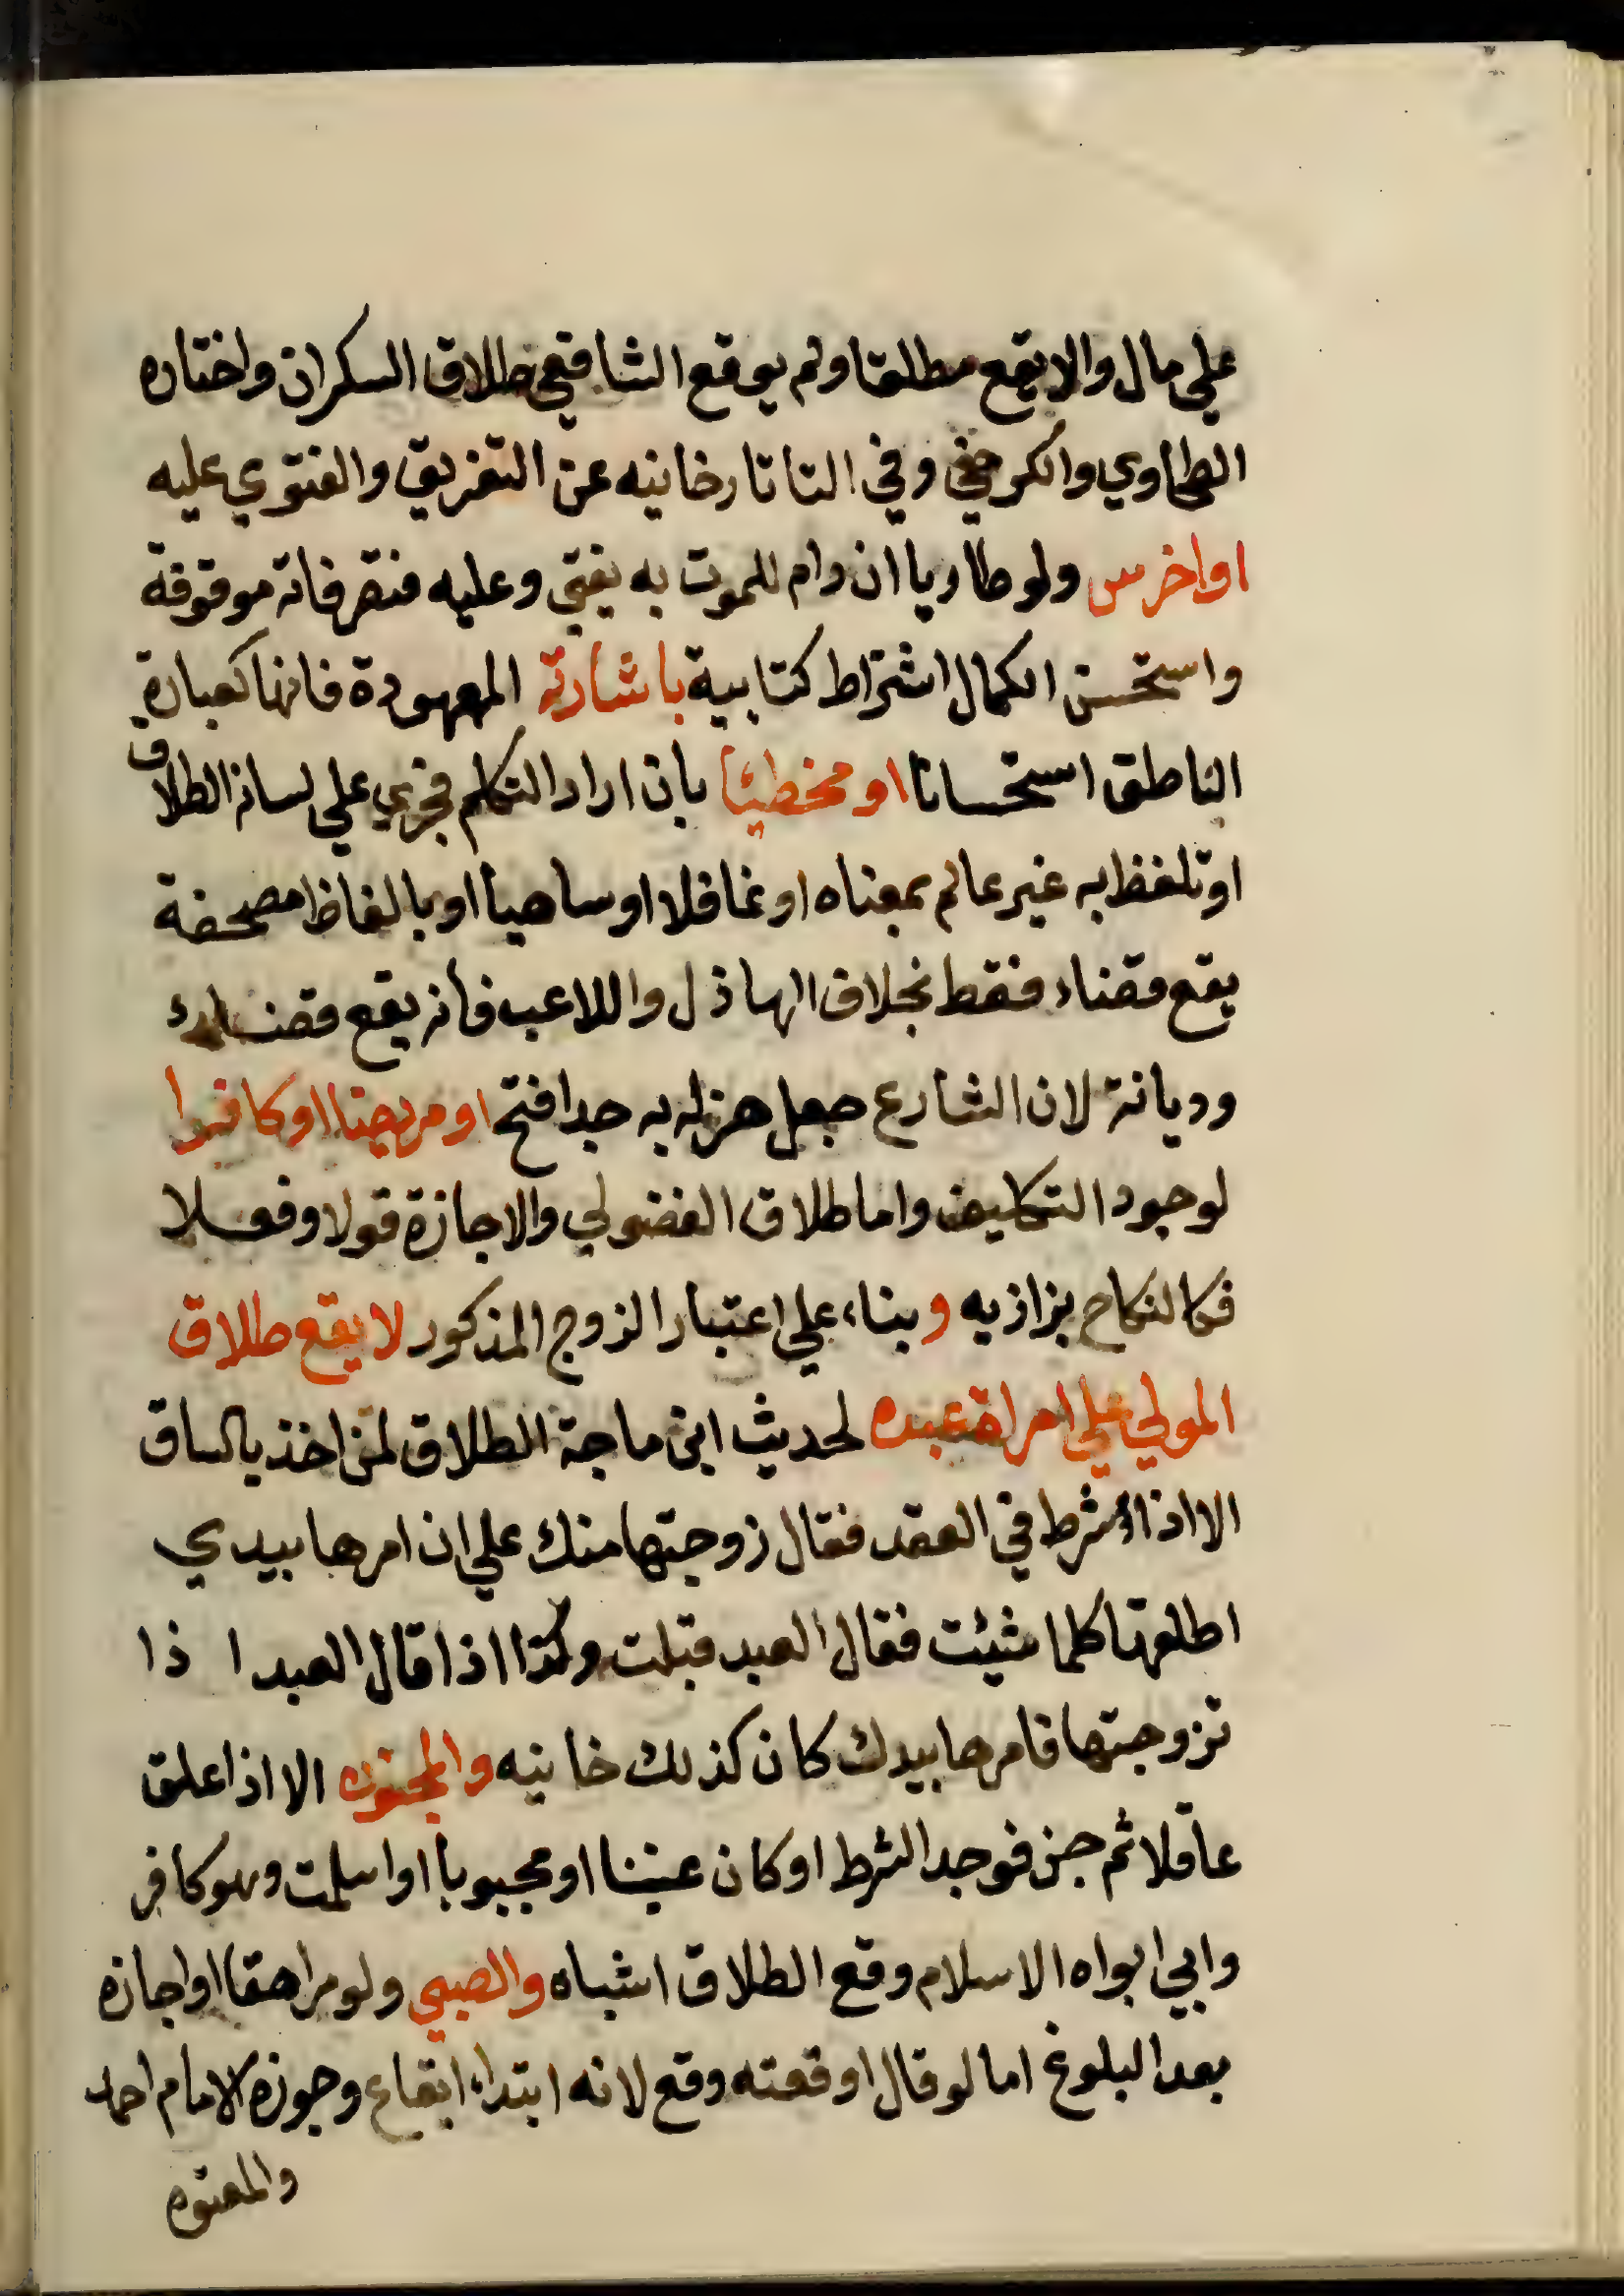 علي مال والا يقع مطلقا ولم يوقع الشافعي طلاق السكران واختاره
الطحاوي والكرخي وفي التاتارخانيه عن التفريق والفتوي عليه
او اخرس ولو طاريا ان دام للموت به يفتي وعليه فتصرفاته موقوفة
واستحسن الكمال اشتراط كتابية باشارته المعهودة فانها كعبارة
الناطق استحسانا او مخطيئا بان اراد التكلم فجري علي لسانه الطلاق
او تلفظ به غير عالم بمعناه او غافلا او ساهيا او بالفاظ مصحفة
يقع قضاء فقط بخلاف الهاذل واللاعب فانه يقع قضاء
وديانة لان الشارع جعل هزله به جدا فتح او مريضا او كافرا
لوجود التكليف واما طلاق الفضولي والاجازة قولا وفعلا
فكالنكاح بزازيه وبناء علي اعتبار الزوج المذكور لا يقع طلاق
المولي علي امراة عبده لحديث ابن ماجة الطلاق لمن اخذ بالساق
الا اذا شرط في العقد فقال زوجتها منك علي ان امرها بيدي
اطلقها كلما شيئت فقال العبد قبلت وكذا اذا قال العبد ا ذا
تزوجتها فامرها بيدك كان كذلك خانيه والمجنون الا اذا علق
عاقلا ثم جن فوجد الشرط او كان عنينا او مجبوبا او اسلمت وهو كافر
وابي ابواه الاسلام وقع الطلاق اشباه والصبي ولو مراهقا او اجازه
بعد البلوغ اما لو قال اوقعته وقع لانه ابتداء ايقاع وجوزه الامام احمد
والمعتوه